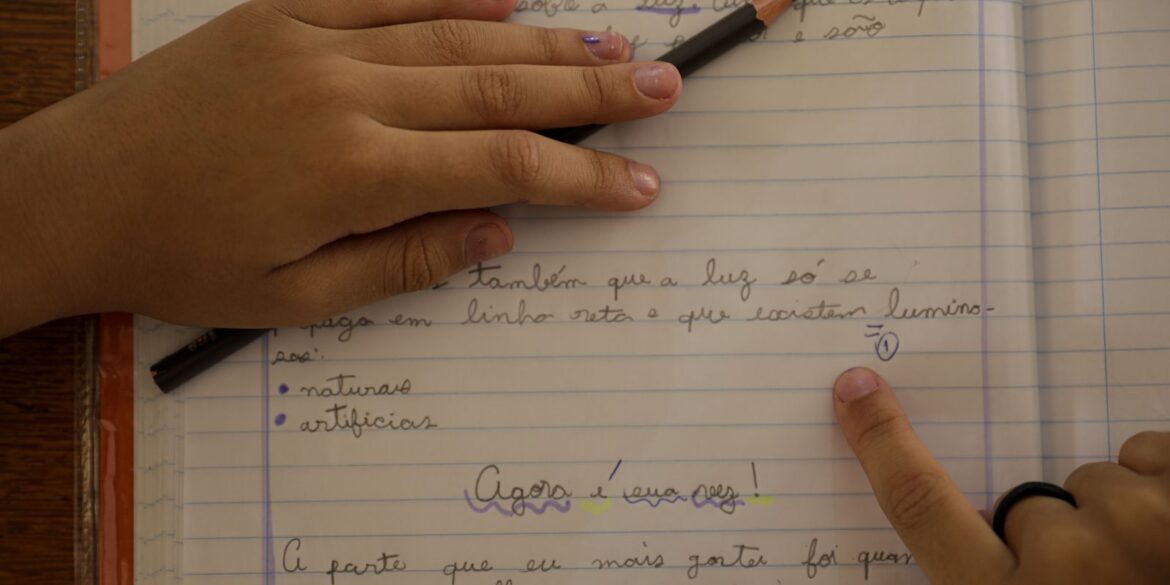 sobre a luz,
e são
também que a luz só se
em linha reta e que existem lumino-
sos:
= 1
• naturais
• artificias
Agora é sua vez!
A parte que eu mais gostei foi quan